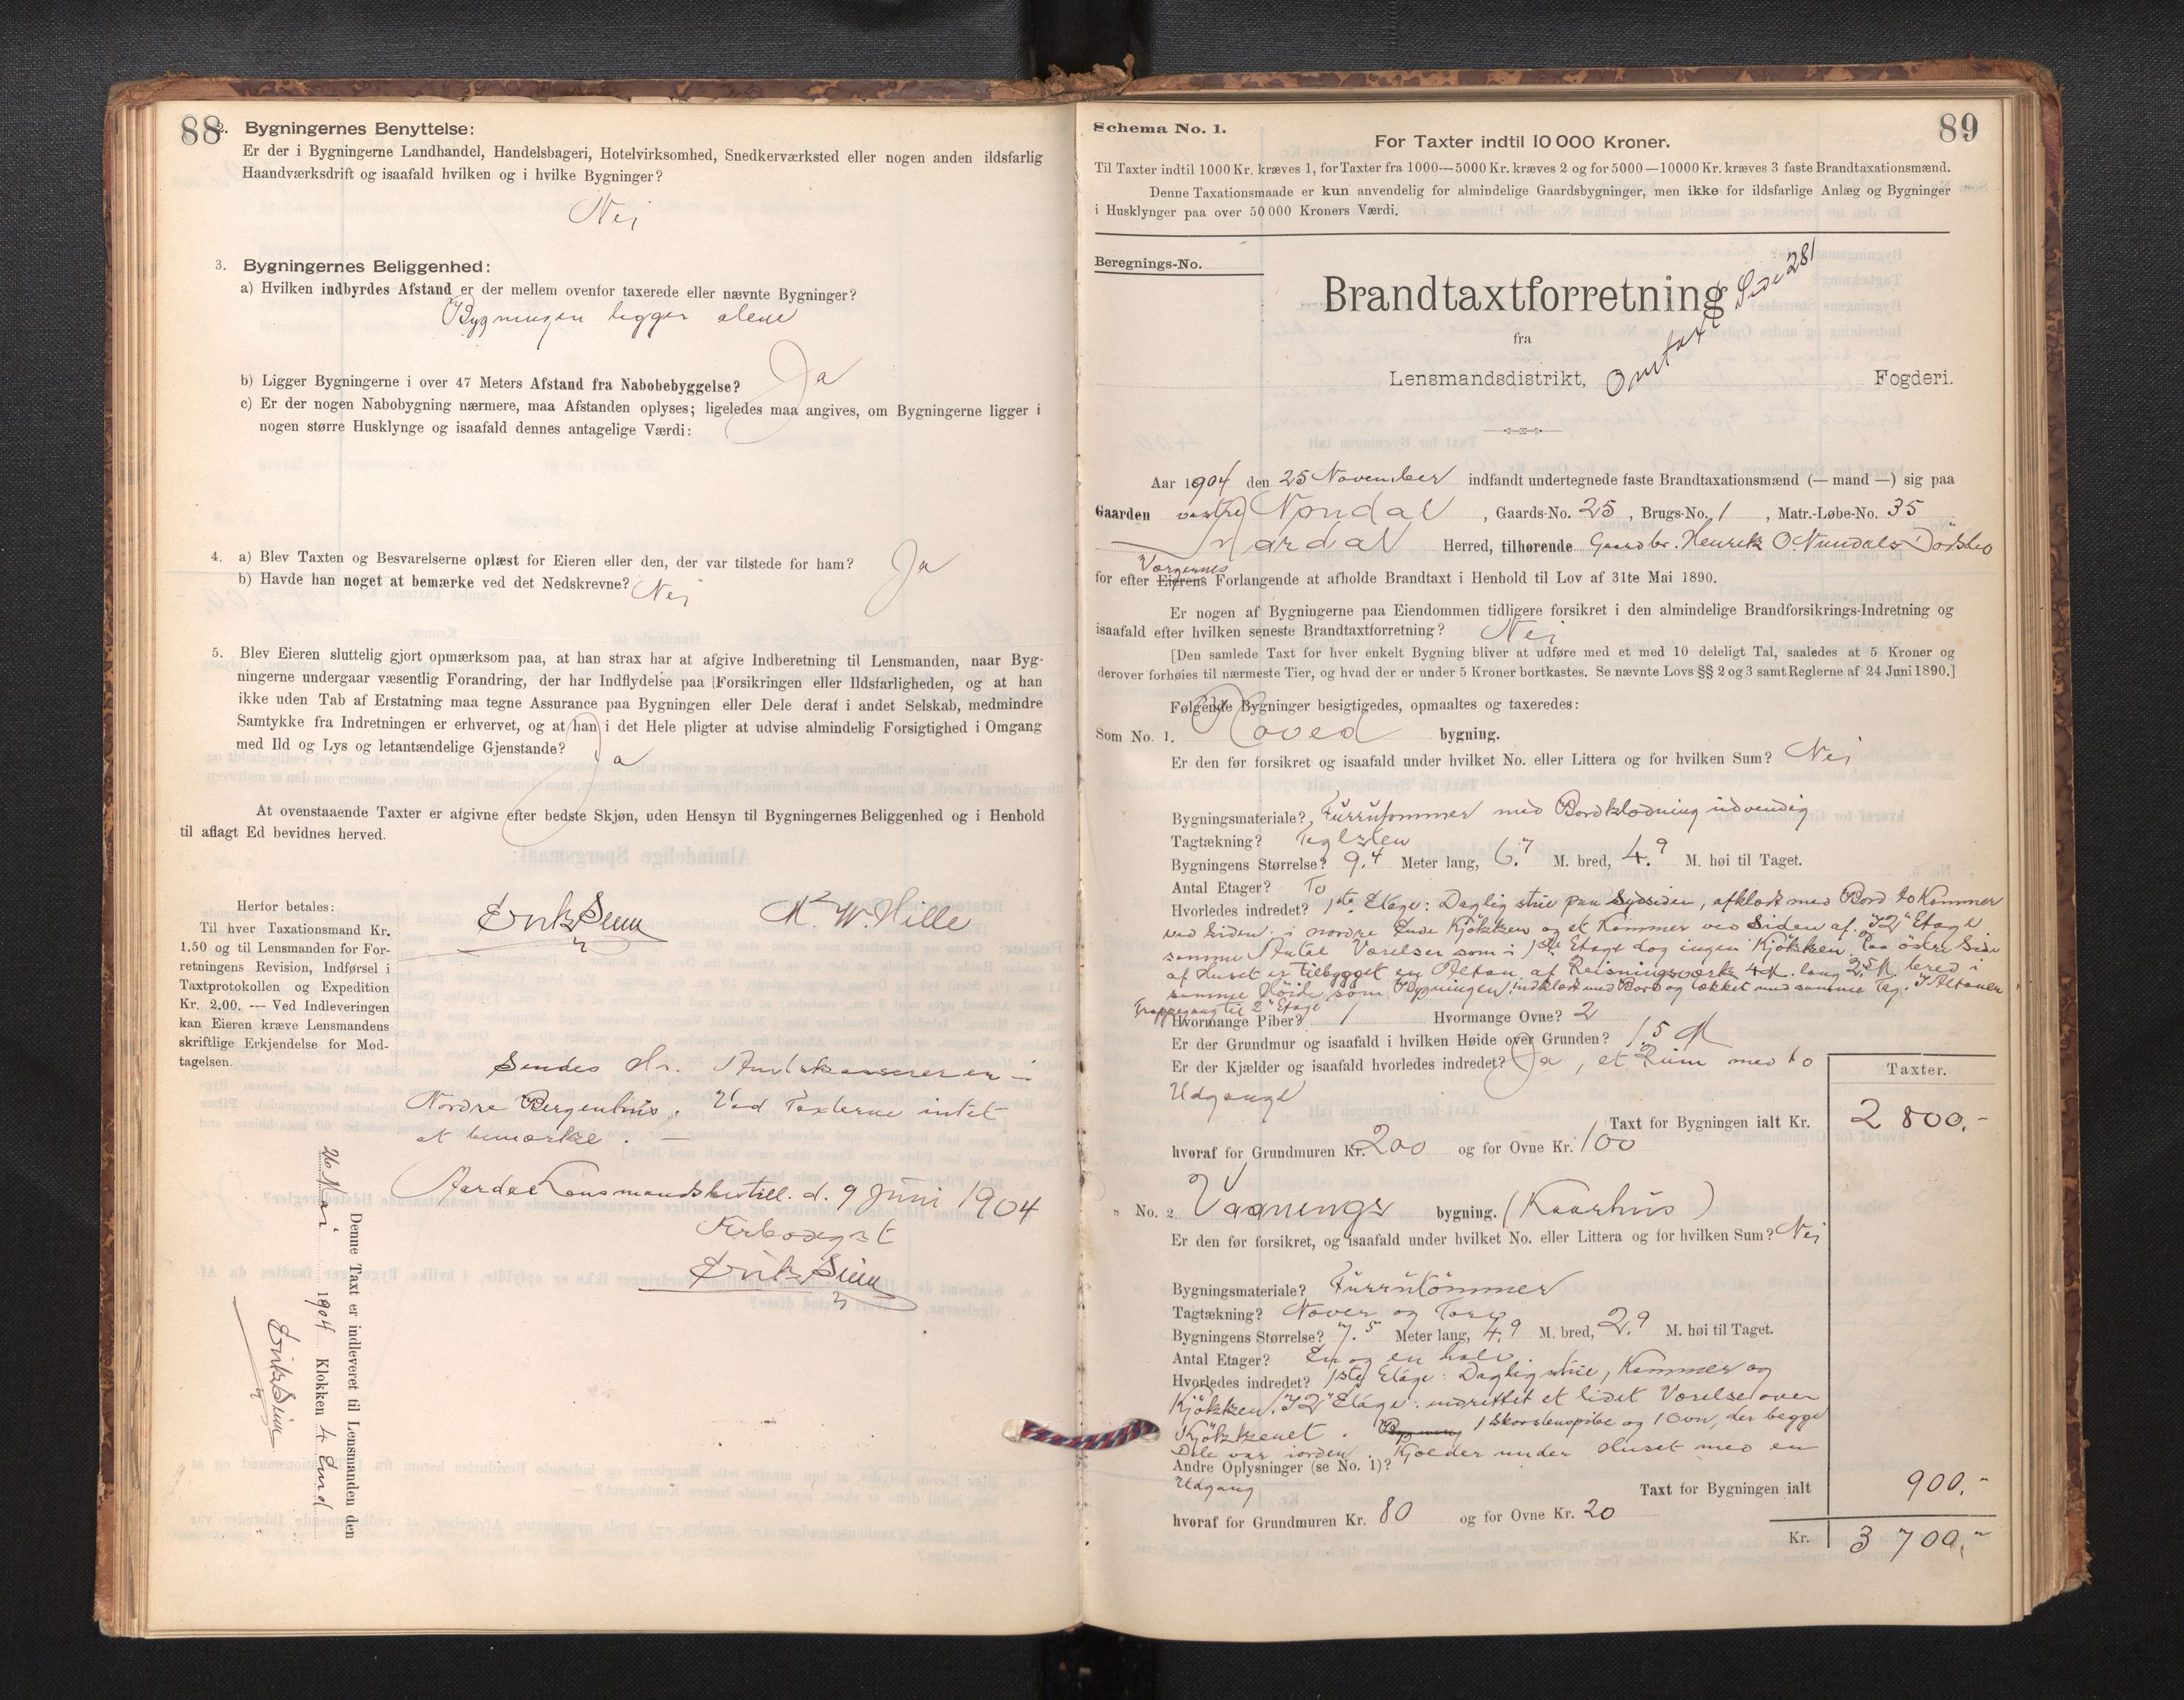 88
2. Bygningernes Benyttelse:
Er der i Bygningerne Landhandel, Handelsbageri, Hotelvirksomhed, Snedkerværksted eller nogen anden ildsfarlig
Haandværksdrift og isaafald hvilken og i hvilke Bygninger?
Nei
3. Bygningernes Beliggenhed:
a) Hvilken indbyrdes Afstand er der mellem ovenfor taxerede eller nævnte Bygninger?
Bygningen ligger alene
b) Ligger Bygningerne i over 47 Meters Afstand fra Nabobebyggelse? Ja
c) Er der nogen Nabobygning nærmere, maa Afstanden oplyses; ligeledes maa angives, om Bygningerne ligger i
nogen større Husklynge og isaafald dennes antagelige Værdi:
4. a) Blev Taxten og Besvarelserne oplæst for Eieren eller den, der var tilstede for ham? Ja
b) Havde han noget at bemærke ved det Nedskrevne? Nei
5. Blev Eieren sluttelig gjort opmærksom paa, at han strax har at afgive Indberetning til Lensmanden, naar Byg-
ningerne undergaar væsentlig Forandring, der har Indflydelse paa Forsikringen eller Ildsfarligheden, og at han
ikke uden Tab af Erstatning maa tegne Assurance paa Bygningen eller Dele deraf i andet Selskab, medmindre
Samtykke fra Indretningen er erhvervet, og at han i det Hele pligter at udvise almindelig Forsigtighed i Omgang
med Ild og Lys og letantændelige Gjenstande?
Ja
At ovenstaaende Taxter er afgivne efter bedste Skjøn, uden Hensyn til Bygningernes Beliggenhed og i Henhold
til aflagt Ed bevidnes herved.
Erik Seim K. W. Hille
Herfor betales:
Til hver Taxationsmand Kr.
1.50 og til Lensmanden for For-
retningens Revision, Indførsel i
Taxtprotokollen og Expedition
Kr. 2.00. — Ved Indleveringen
kan Eieren kræve Lensmandens
skriftlige Erkjendelse for Mod-
tagelsen.
Sendes Hr. Amtskassereren i
Nordre Bergenhus. Ved Taxterne intet
at bemærke. —
Aardal Lensmandsbestill. d. 9 Juni 1904
Ærbødigst
Erik Seim
Denne Taxt er indleveret til Lensmanden den
26 Mai 1904 Klokken 4 Emd
Erik Seim
89
Schema No. 1.
For Taxter indtil 10 000 Kroner.
Til Taxter indtil 1000 Kr. kræves 1, for Taxter fra 1000—5000 Kr. kræves 2 og for 5000—10000 Kr. kræves 3 faste Brandtaxationsmænd.
Denne Taxationsmaade er kun anvendelig for almindelige Gaardsbygninger, men ikke for ildsfarlige Anlæg og Bygninger
i Husklynger paa over 50 000 Kroners Værdi.
Beregnings-No.
Brandtaxtforretning
Omtaxt Side 281
fra
Lensmandsdistrikt, Fogderi.
Aar 1904 den 25 November indfandt undertegnede faste Brandtaxationsmænd (— mand —) sig paa
Gaarden vestre Nondal, Gaards-No. 25, Brugs-No. 1, Matr.-Løbe-No. 35
Aardal Herred, tilhørende Gaardbr. Henrik O. Nundals Dødsbo
Værgernes
for efter Eierens Forlangende at afholde Brandtaxt i Henhold til Lov af 31te Mai 1890.
Er nogen af Bygningerne paa Eiendommen tidligere forsikret i den almindelige Brandforsikrings-Indretning og
isaafald efter hvilken seneste Brandtaxtforretning? Nei
[Den samlede Taxt for hver enkelt Bygning bliver at udføre med et med 10 deleligt Tal, saaledes at 5 Kroner og
derover forhøies til nærmeste Tier, og hvad der er under 5 Kroner bortkastes. Se nævnte Lovs §§ 2 og 3 samt Reglerne af 24 Juni 1890.]
Følgende Bygninger besigtigedes, opmaaltes og taxeredes:
Som No. 1. Hoved bygning.
Er den før forsikret og isaafald under hvilket No. eller Littera og for hvilken Sum? Nei
Bygningsmateriale? Furrutømmer med Bordklædning udvendig
Tagtækning? Teglsten
Bygningens Størrelse? 9.4 Meter lang, 6.7 M. bred, 4.9 M. høi til Taget.
Antal Etager? To
Hvorledes indredet? 1ste Etage: Daglig stue paa Sydsiden, afklædt med Bord to Kammer
ved siden. i nordre Ende Kjøkken og et Kammer ved Siden af. I 2" Etage
samme Antal Værelser som i 1ste Etage dog ingen Kjøkken. Paa østre Side
af Huset er tilbygget en Altan af Reisningsværk 4 M. lang 2.5 M. bred i
samme Høide som Bygningen, indklædt med Bord og tækket med samme Tag. I Altanen
Trappegang til 2" Etage
Hvormange Piber? 1 Hvormange Ovne? 2
Er der Grundmur og isaafald i hvilken Høide over Grunden? 1.5 M
Er der Kjælder og isaafald hvorledes indredet? Ja, et Rum med to
Udgange
Taxter.
Taxt for Bygningen ialt Kr. 2 800.-
hvoraf for Grundmuren Kr. 200 og for Ovne Kr. 100
" No. 2 Vaanings bygning. (Kaarhus)
Er den før forsikret, og isaafald under hvilket No. eller Littera og for hvilken Sum? Nei
Bygningsmateriale? Furrutømmer
Tagtækning? Næver og Torv
Bygningens Størrelse? 7.5 Meter lang, 4.9 M. bred, 2.9 M. høi til Taget.
Antal Etager? En og en halv.
Hvorledes indredet? 1ste Etage: Daglig stue, Kammer og
Kjøkken. I 2" Etage: indrettet et lidet Værelse over
Kjøkkenet. 1 Skorstenspibe og 1 Ovn, der begge
Dele var i orden. Kjælder under Huset med en
Andre Oplysninger (se No. 1)?
Udgang
Taxt for Bygningen ialt 900.-
hvoraf for Grundmuren Kr. 80 og for Ovne Kr. 20
Kr. 3 700,-